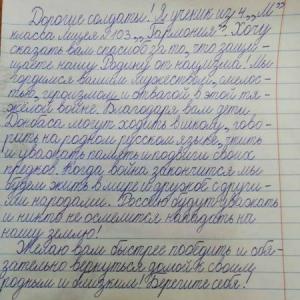 Дорогие солдаты! Я ученик из 4 „М"
класса Лицея №103 „Гармония". Хочу
сказать вам спасибо за то, что защи-
щаете нашу Родину от нацизма! Мы
гордимся вашим мужеством, смелос-
тью, героизмом и отвагой в этой тя-
жёлой войне. Благодаря вам дети
Донбаса могут ходить в школу, гово-
рить на родном русском языке, чтить
и уважать память и подвиги своих
предков. Когда война закончится мы
будем жить в мире и дружбе с други-
ми народами. Россию будут уважать
и никто не осмелится нападать на
нашу землю!
Желаю вам быстрее победить и обя-
зательно вернуться домой к своим
родным и близким! Берегите себя!